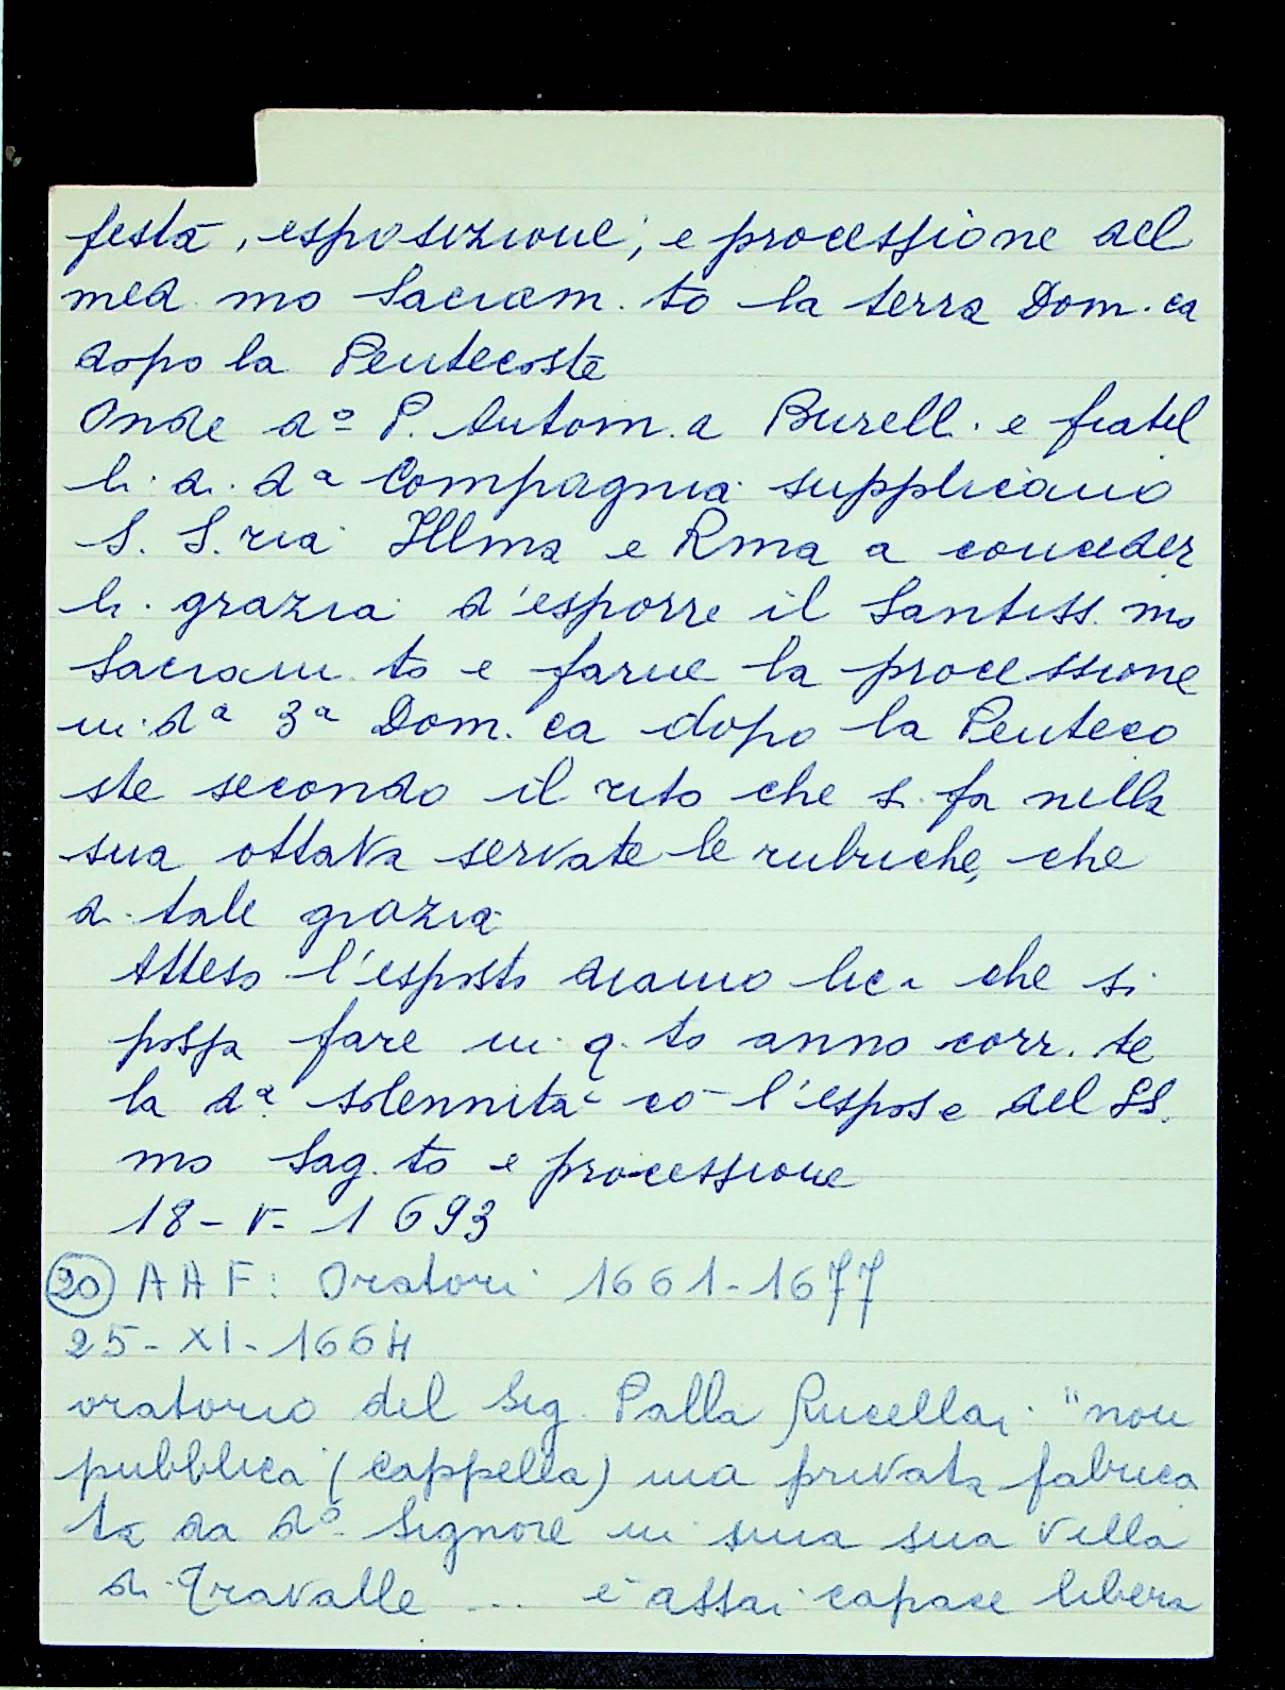 festa, esposizione, e processione del
med. mo Sacram. to la terza Dom. ca
dopo la Pentecoste
Onde dº P. Antom. a Burell. e fratel
li di dª Compagnia supplicano
S. S. ria Illma e Rma a conceder
li grazia d'esporre il Santiss. mo
Sacram. to e farne la processione
in dª 3ª Dom. ca dopo la Penteco
ste secondo il rito che si fa nella
sua ottava servate le rubriche, che
di tale grazia
Atteso l'esposto diamo lica che si
possa fare in q. to anno corr. te
la dª solennità cō l'espose del SS.
mo Sag. to e processione
18-V-1693
20 AAF: Oratori 1661-1677
25-XI-1664
oratorio del Sig. Palla Rucellai "non
pubblica (cappella) ma privata fabrica
ta da dº Signore in una sua villa
di Travalle ... è assai capace libera